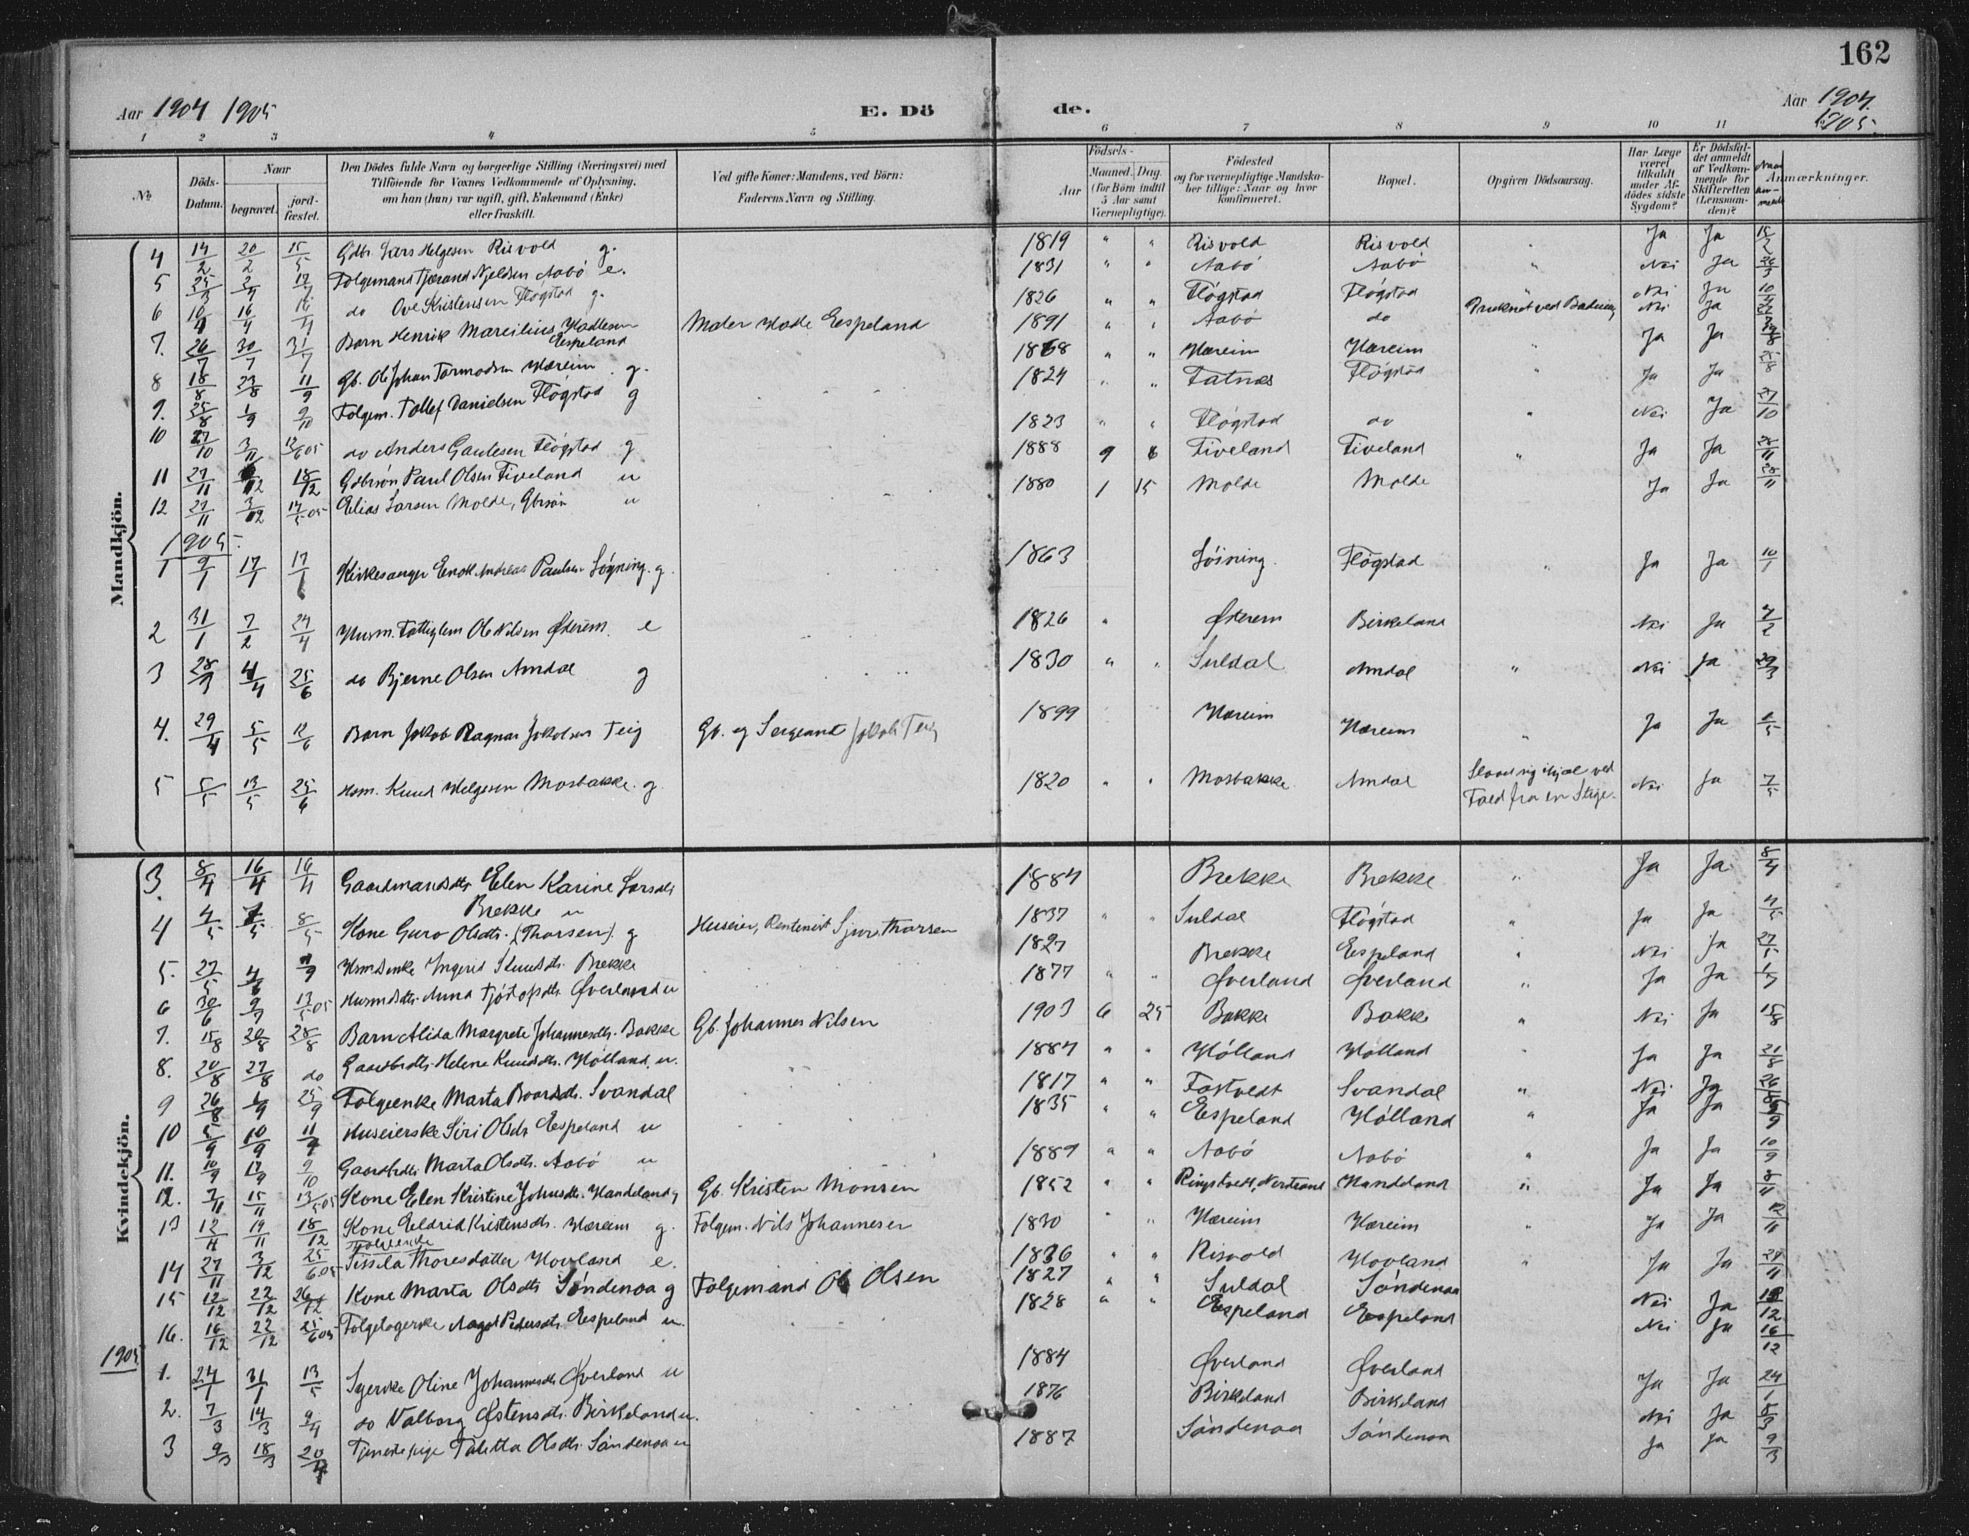 162
Aar 1904 1905 E. Dö de. Aar 1904. 1905.
1 2 3 4 5 6 7 8 9 10 11
No. Döds-Datum. Naar begravet. jord-fæstet. Den Dödes fulde Navn og borgerlige Stilling (Næringsvei) med Tilföiende for Voxnes Vedkommende af Oplysning, om han (hun) var ugift, gift, Enkemand (Enke) eller fraskilt. Ved gifte Koner: Mandens, ved Börn: Faderens Navn og Stilling. Födsels- Aar Maaned. Dag. (for Börn indtil 5 Aar samt Værnepligtige). Födested og for værnepligtige Mandska-ber tillige: Naar og hvor konfirmeret. Bopæl. Opgiven Dödsaarsag. Har Læge været tilkaldt under Af-dödes sidste Sygdom? Er Dödsfal-det anmeldt af Vedkom-mende for Skifteretten (Lensman-den)? Naar an-meldt Anmærkninger.
Mandkjön.
4 14/2 20/2 15/5 Gdbr. Lars Helgesen Risvold g. 1819 " " Risvold Risvold " Ja Ja 15/2
5 25/3 Folgemand Tjærand Njeldsen Aabö e. 1831 " " Aabö Aabö " Nei Ja 26/3
6 10/4 16/4 do Ove Kristensen Flögstad g. 1826 " " Flögstad Flögstad " Nei Ja 10/4
7. 26/7 30/7 31/7 Barn Henrik Marcilius Hadlesen Espeland Moder Hadle Eespeland 1891 " " Aabö do Druknet ved Badning Nei Ja
8 18/8 23/8 11/9 Gb. Ole Johan Tormodsen Hæreim g. 1868 " " Hæreim Hæreim Ja Ja
9. 25/8 1/9 9/10 Folgem. Tollef Danielsen Flögstad g 1824 " " Fatnæs Flögstad " Ja Ja 25/8
10 27/10 3/11 13/6 05 do Anders Gaulesen Flögstad g 1823 " " Flögstad do " Nei Ja 27/10
11 27/11 18/12 Gdbrsön Paul Olsen Tiveland u 1888 9 6 Tiveland Tiveland " Ja Ja 28/11
12 27/11 3/12 14/5 05 Elias Larsen Molde, Gbrsön u 1880 1 15 Molde Molde Ja Ja 28/11
1905.
1 9/1 17/1 17/1 Kirkesanger Enok Andreas Paulsen Lögning. g. 1863 Löining. Flögstad " Ja Ja 10/1
2 31/1 7/2 24/4 Husm. Fattiglem Ole Nilsen Østerem. e 1826 " Østerem Birkeland Nei Ja 2/2
3 28/3 4/4 25/6 do Bjerne Olsen Amdal g 1830 " " Suldal Amdal " Nei Ja 29/3
4. 29/4 5/5 12/6 Barn Jakob Ragnar Jakobsen Teig Gb. og Sergeant Jakob Teig 1899 Hæreim Hæreim " Ja Ja 2/5
5 5/5 13/5 25/6 Hsm. Knud Helgesen Mosbakke. g. 1820 " " Mosbakke. Amdal Slaa sig ihjæl ved Fald fra en Stige. Nei Ja 7/5
Kvindekjön.
3. 8/4 16/4 16/4 Gaardmandsdtr. Elen Karine Larsdtr Brekke u 1884 Brekke Brekke " Ja Ja 8/4
4 4/5 7/5 8/5 Kone Guro Olsdtr. (Thorsen). g Huseier, Rentenist Sjur Thorsen 1837 " " Suldal Flögstad " Ja Ja 4/5
5. 27/5 4/6 Hsm.Enke Ingerid Knudsdtr. Brekke 1827 Brekke Espeland " Nei Ja 27/5
6 30/6 9/7 13/5 05 Husmdsdtr. Anna Tjöstofsdtr. Øverland u 1877 " " Øverland Øverland " Ja Ja 1/7
7. 15/8 20/8 28/8 Barn Alida Margrete Johannesdtr. Bakke Gb. Johannes Nilsen 1903 6 25 Bakke Bakke " Nei Ja 15/8
8. 20/8 27/8 do Gaardbrdtr. Helene Knudsdtr. Hölland. u. 1884 " " Hölland Hölland " Ja Ja 21/8
9 26/8 1/9 25/9 Folgeenke Marta Baardsdtr. Svandal 1817 " " Fastvedt Svandal " Nei Ja 26/8
10 5/9 10/9 11/9 Huseierske Siri Olsdtr. Eespeland u 1835 " " Eespeland Hölland " Ja Ja
11. 10/9 17/9 9/10 Gaardbrdtr. Marta Olsdtr. Aabö u 1889 " " Aabö Aabö " Ja Ja 10/9
12. 7/11 15/11 13/5 05 Kone Elen Kristine Johnsdtr. Handeland g Gb. Kristen Monsen 1852 " " Ringstvedt, Nerstrand Handeland " Ja Ja 8/11
13 12/11 19/11 18/12 Kone Eeldrid Kristensdtr. Hæreim g. Folgem. Nils Johannesen 1830 " " Hæreim Hæreim " Ja Ja 12/11
14 27/11 3/12 25/6 05 Folgeenke Sissela Thoresdatter Hovland e. 1836 " " Risvold Hovland " Ja Ja 29/11
15 12/12 22/12 26/12 Kone Marta Olsdtr. Söndenaa g Folgemand Ole Olsen 1827 " " Suldal Söndenaa Nei Ja 13/12
16. 16/12 22/12 25/6 05 Folgetagerske Aagot Pedersdtr. Eespeland u. 1828 " " Eespeland Eespeland Nei Ja 16/12
1905
1. 24/1 31/1 13/5 Syerske Oline Johannesdtr Øverland u 1884 Øverland Øverland Ja Ja 24/1
2. 7/3 14/3 9/4 do Valborg Østensdtr. Birkeland u. 1876 Birkeland Birkeland Nei Ja 8/3
3 9/3 18/3 20/4 Tjenestepige Talitta Olsdtr. Söndenaa u 1887 Söndenaa Söndenaa Ja Ja 9/3